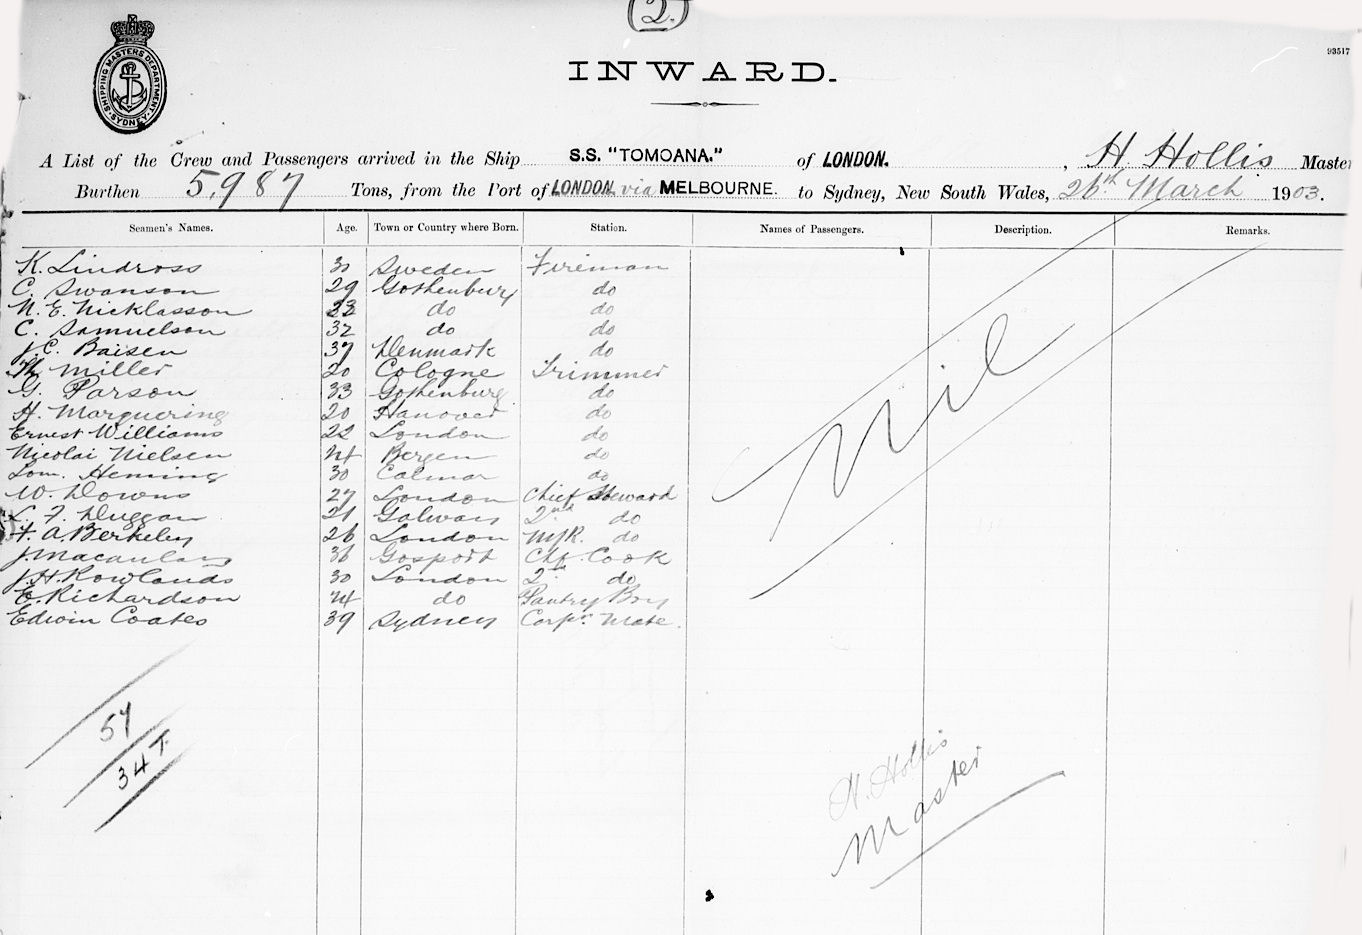 (2.)
93517
SHIPPING MASTERS DEPARTMENT SYDNEY
INWARD.
A List of the Crew and Passengers arrived in the Ship S.S. "TOMOANA." of LONDON. , H. Hollis Master
Burthen 5,987 Tons, from the Port of LONDON via MELBOURNE. to Sydney, New South Wales, 26th March 1903.
Seamen's Names. Age. Town or Country where Born. Station. Names of Passengers. Description. Remarks.
K. Lindross 30 Sweden Fireman
C. Swanson 29 Gothenburg do
N. E. Nicklasson 23 do do
C. Samuelson 32 do do
J. C. Baisen 37 Denmark do
Th. Miller 20 Cologne Trimmer
G. Parson 33 Gothenburg do
H. Marguering 20 Hanover do
Ernest Williams 22 London do
Nicolai Nielsen 24 Bergen do
Lom. Heming 30 Calmar do
W. Downs 27 London Chief Steward
L. F. Duggan 21 Galway 2nd do
F. A. Berkeley 26 London M/R. do
J. Macaulay 36 Gosport Chf. Cook
J. H. Rowlands 30 London 2. do
E. Richardson 24 do Pantry Boy
Edwin Coates 39 Sydney Carpr. Mate.
Nil
57
34 T.
H. Hollis
Master